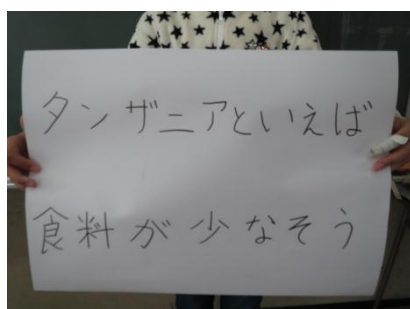 タンザニアといえば
食料が少なそう